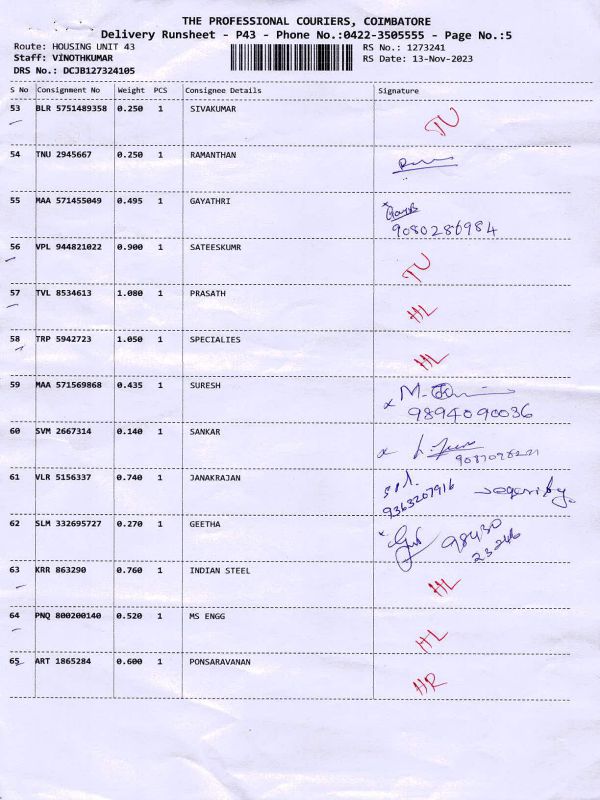 THE PROFESSIONAL COURIERS, COIMBATORE
Delivery Runsheet - P43 - Phone No.:0422-3505555 - Page No.:5
Route: HOUSING UNIT 43 RS No.: 1273241
Staff: VINOTHKUMAR RS Date: 13-Nov-2023
DRS No.: DCJB127324105
S No Consignment No Weight PCS Consignee Details Signature
53 BLR 5751489358 0.250 1 SIVAKUMAR TU
54 TNU 2945667 0.250 1 RAMANTHAN
55 MAA 571455049 0.495 1 GAYATHRI
9080286984
56 VPL 944821022 0.900 1 SATEESKUMR TU
57 TVL 8534613 1.080 1 PRASATH HL
58 TRP 5942723 1.050 1 SPECIALIES HL
59 MAA 571569868 0.435 1 SURESH
9894090036
60 SVM 2667314 0.140 1 SANKAR
61 VLR 5156337 0.740 1 JANAKRAJAN
9363207916
62 SLM 332695727 0.270 1 GEETHA 98430
23246
63 KRR 863290 0.760 1 INDIAN STEEL HL
64 PNQ 800200140 0.520 1 MS ENGG HL
65 ART 1865284 0.600 1 PONSARAVANAN HR